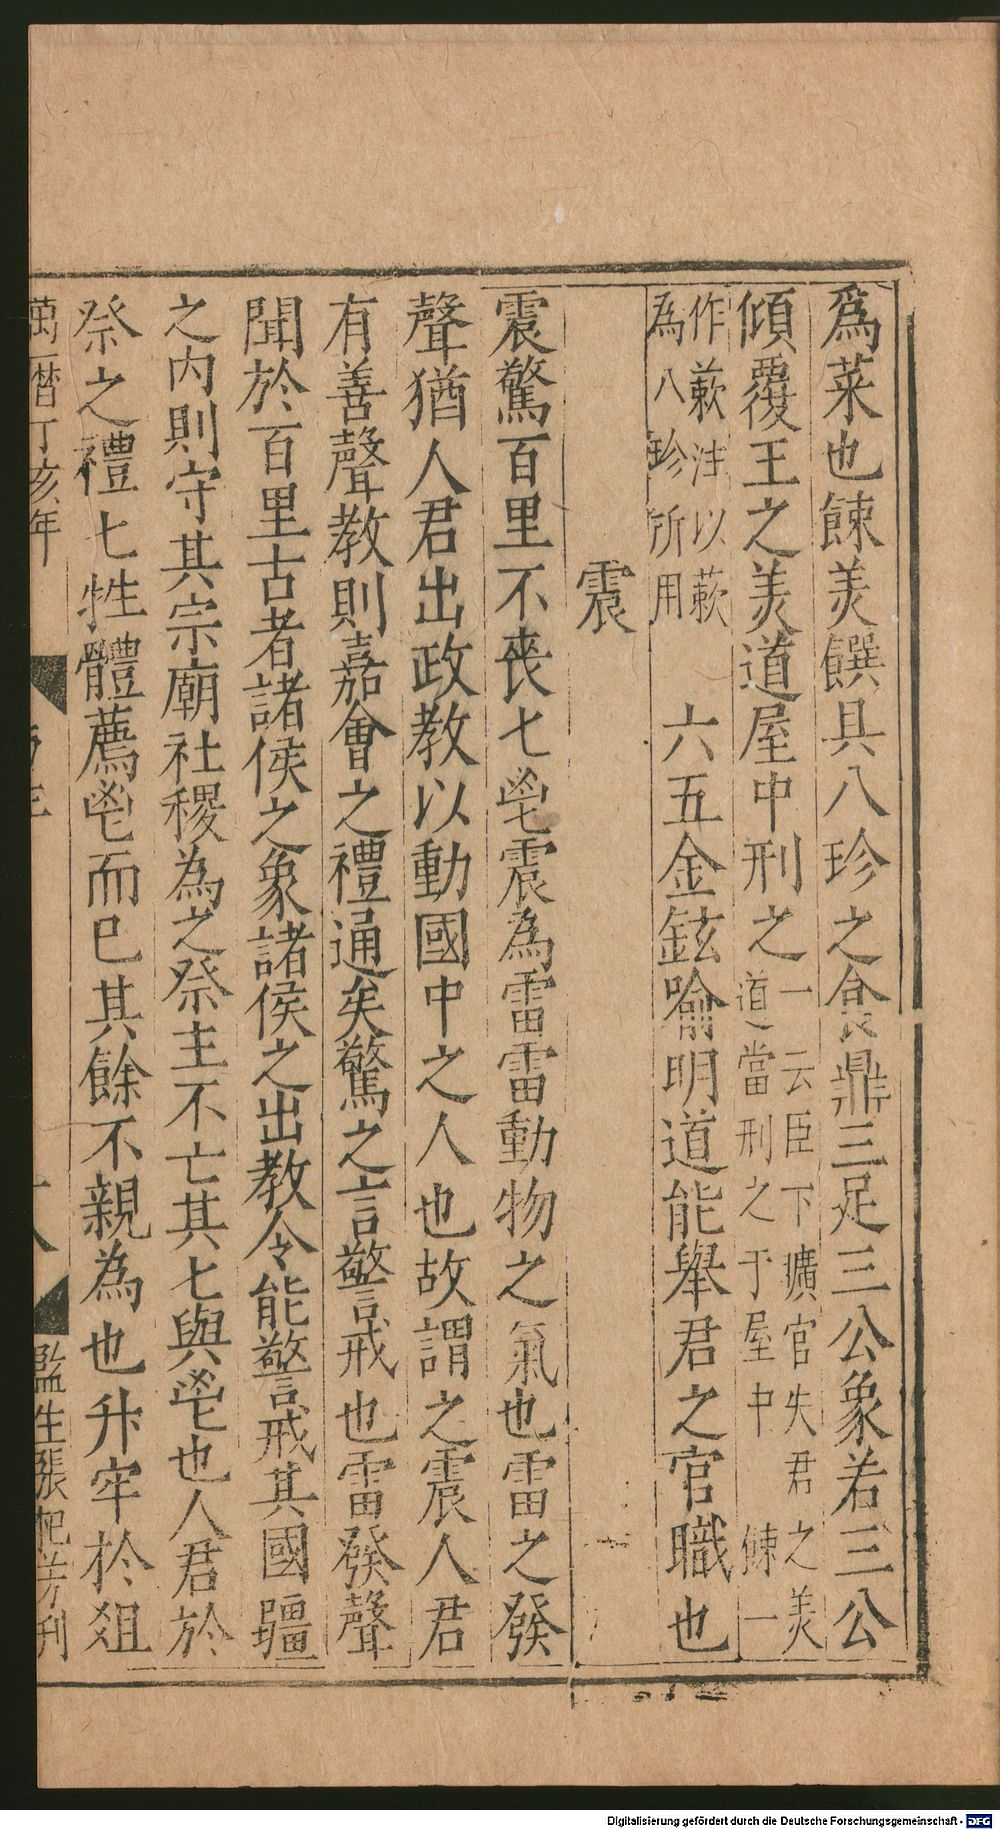 爲菜也餗美饌具八珍之食鼎三足三公象若三公
傾覆王之美道屋中刑之一云臣下曠官失君之美
道當刑之于屋中 餗一
作蔌注以蔌
為八珍所用 六五金鉉喻明道能舉君之官職也
震
震驚百里不喪匕鬯震為雷雷動物之氣也雷之發
聲猶人君出政教以動國中之人也故謂之震人君
有善聲教則嘉會之禮通矣驚之言警戒也雷發聲
聞於百里古者諸侯之象諸侯之出教令能警戒其國疆
之內則守其宗廟社稷為之祭主不亡其匕與鬯也人君於
祭之禮匕牲體薦鬯而已其餘不親為也升牢於俎
萬曆丁亥年
八
監生張杞芳刊
Digitalisierung gefördert durch die Deutsche Forschungsgemeinschaft - DFG